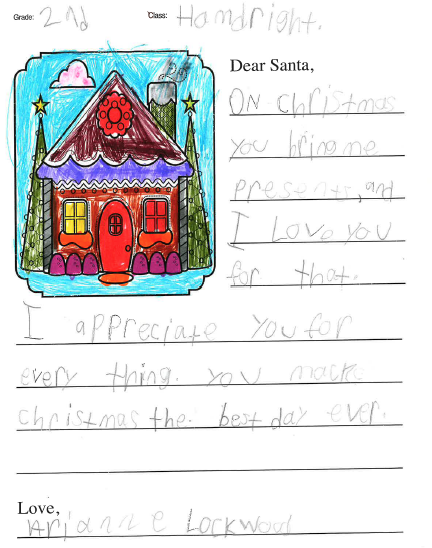 Grade: 2nd Class: Handright.
Dear Santa,
ON christmas
you bring me
presents, and
I Love you
for that.
I appreciate you for
every thing. you macke
christmas the. best day ever.
Love,
Arianne Lockwood